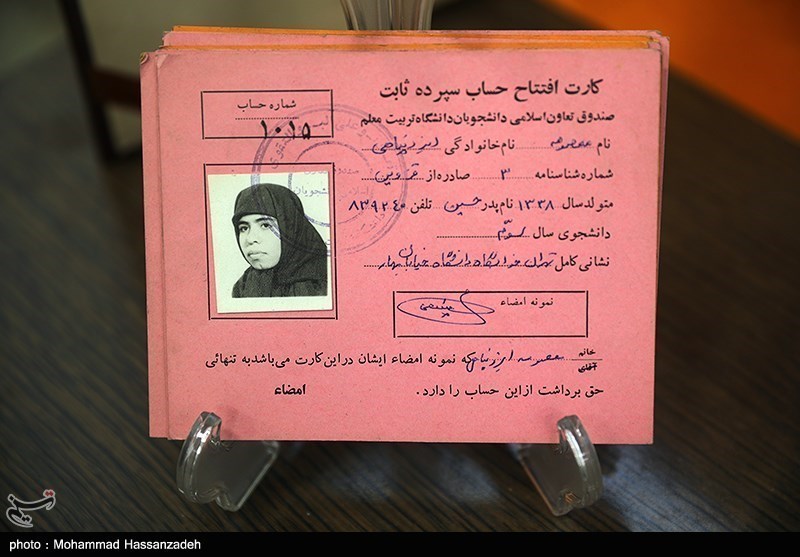 کارت افتتاح حساب سپرده ثابت
شماره حساب
۱۰۱۵
صندوق تعاون اسلامی دانشجویان دانشگاه تربیت معلم
نام معصومه نام خانوادگی
شماره شناسنامه ۳ صادره از قزوین
متولد سال ۱۳۳۸ نام پدر حسین تلفن ۸۳۹۲۴۰
دانشجوی سال سوم
نشانی کامل تهران خوابگاه دانشگاه خیابان بهار
نمونه امضاء
خانم
آقای
معصومه که نمونه امضاء ایشان در این کارت می‌باشد به تنهائی
حق برداشت از این حساب را دارد. امضاء
تسنیم
photo : Mohammad Hassanzadeh